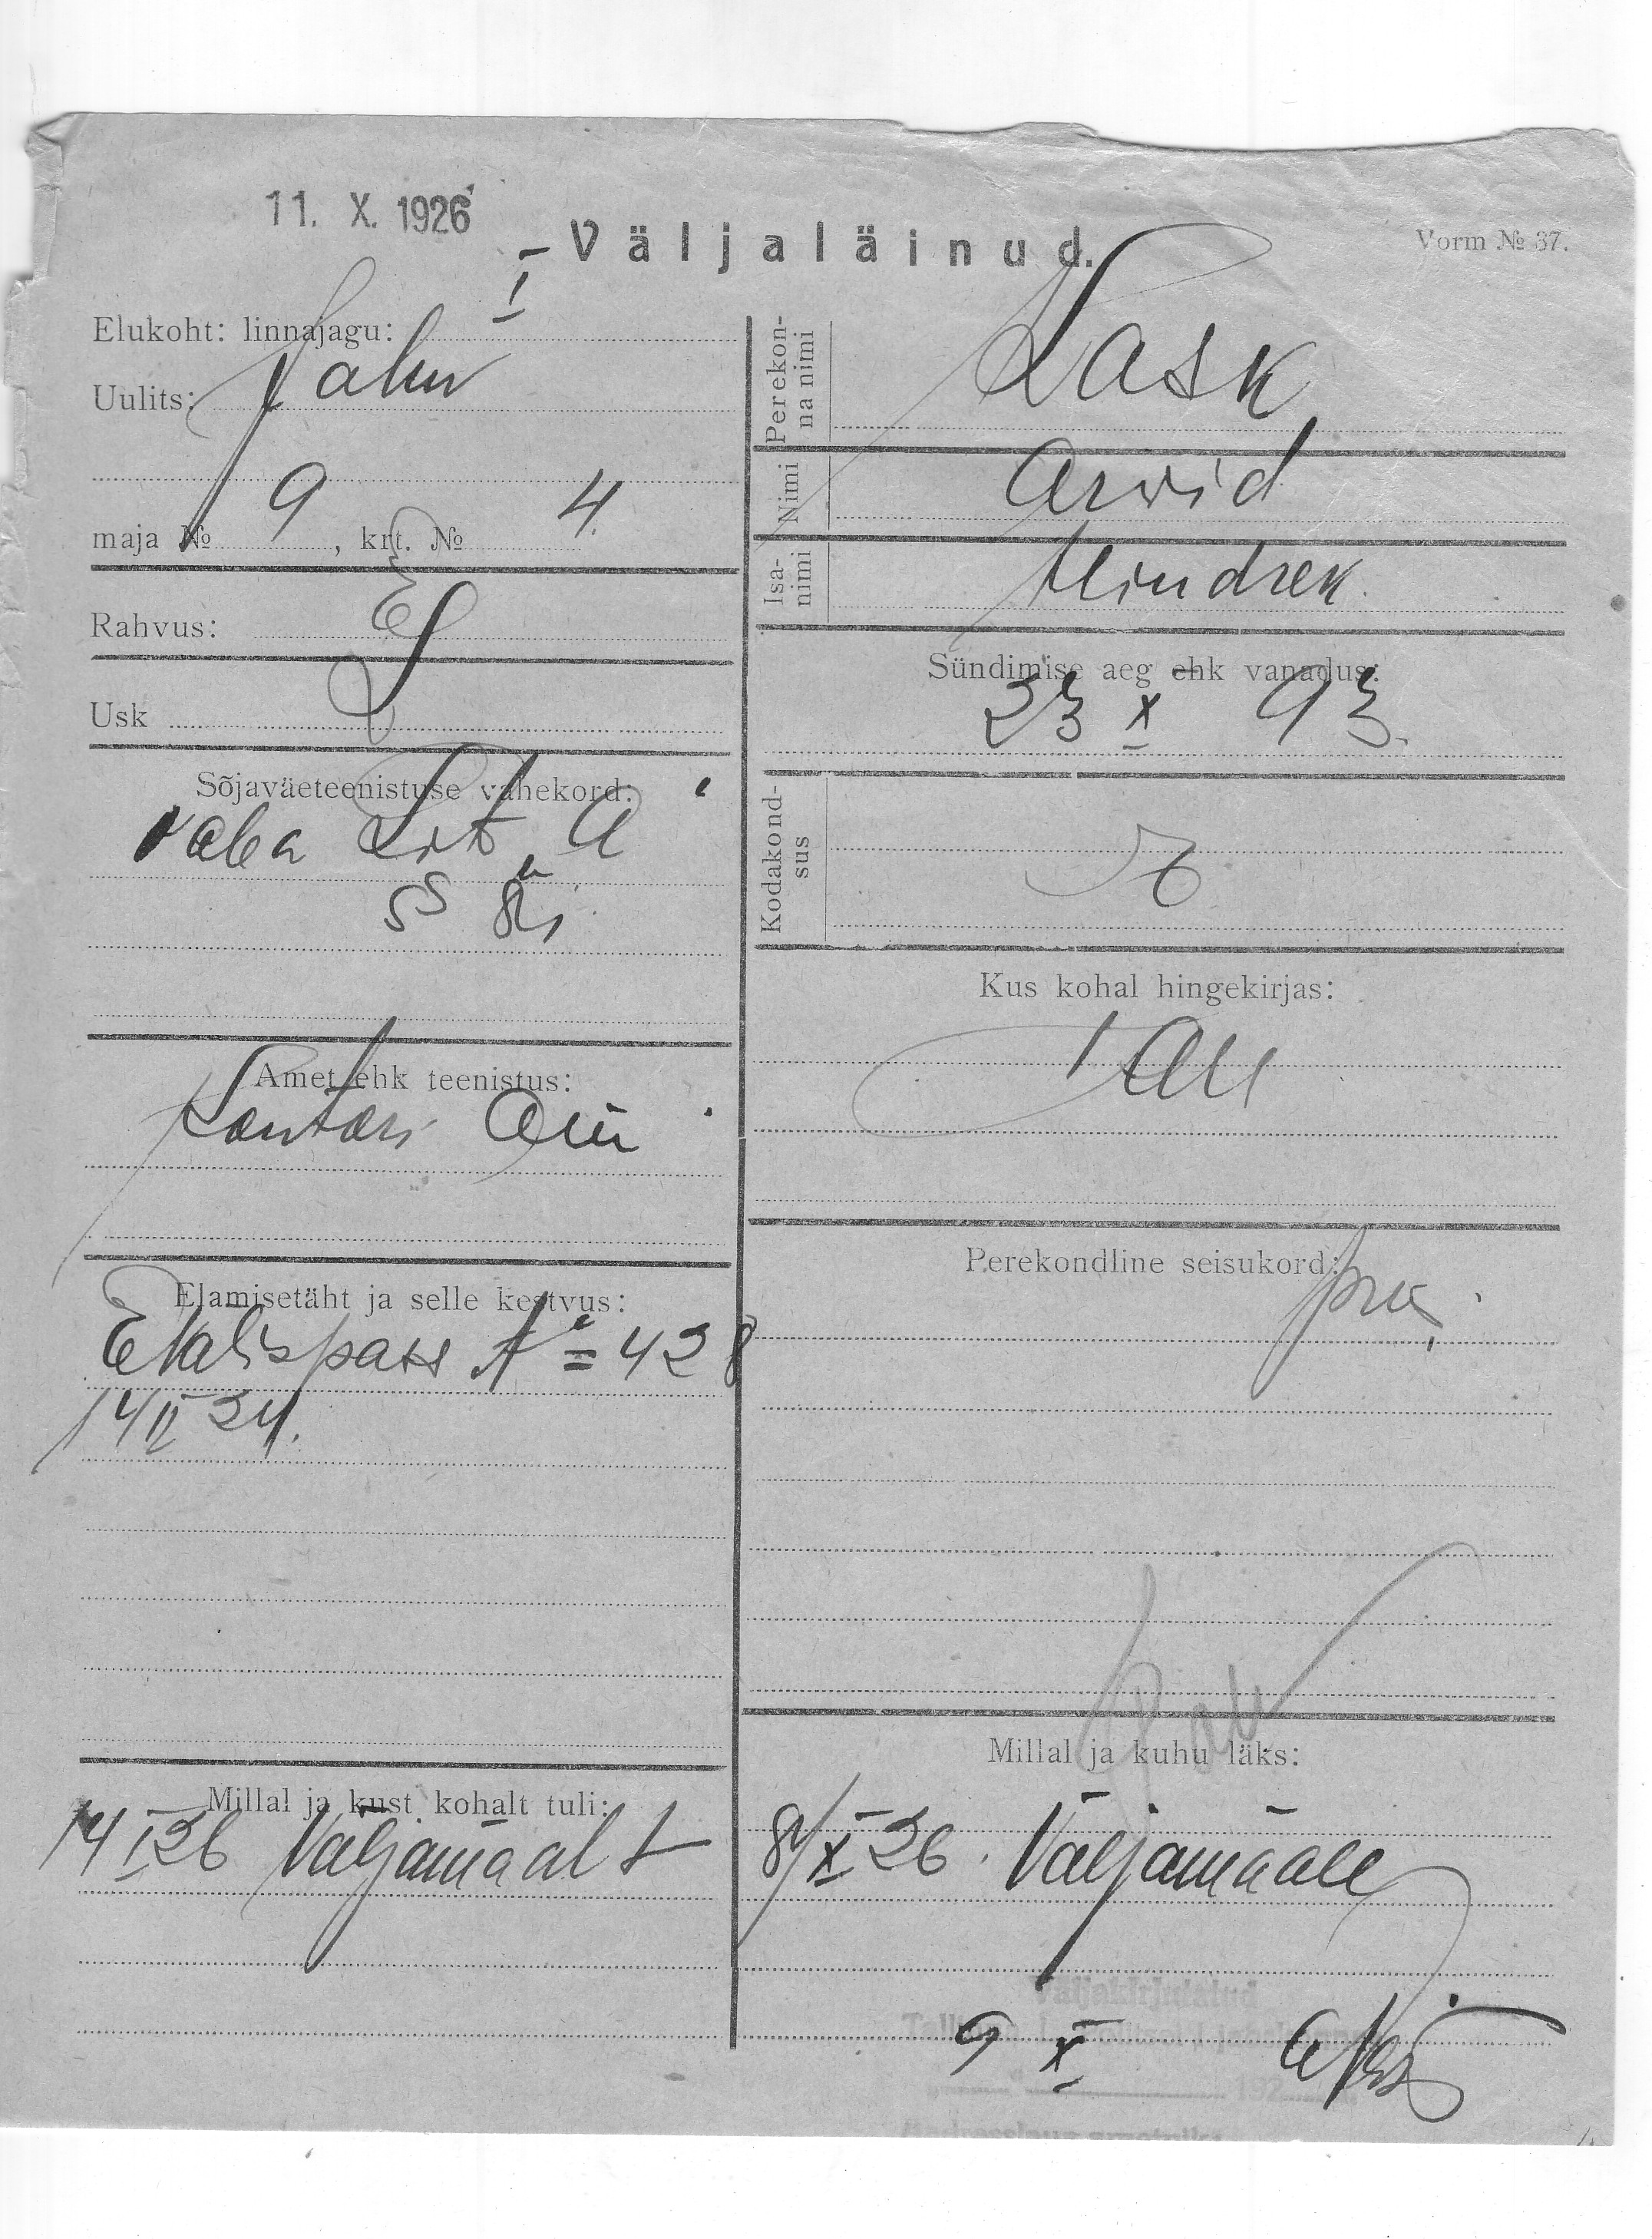 11. X. 1926
Väljaläinud.
Vorm № 37.
Elukoht: linnajagu: I
Uulits: Jahu
maja № 9, krt. № 4
Rahvus: E
Usk L
Sõjaväeteenistuse vahekord:
vaba Lit. A
Amet ehk teenistus:
Kontori
Elamisetäht ja selle kestvus:
Välispass № 428
14/II 24.
Millal ja kust kohalt tuli:
14 I 26 Väljamaalt
Perekonna nimi Kask
Nimi Arvid
Isanimi Hindrek
Sündimise aeg ehk vanadus:
23 X 93.
Kodakondsus
Kus kohal hingekirjas:
Tall
Perekondline seisukord:
Millal ja kuhu läks:
8/X 26. Väljamaale
Väljakirjutatud
9 X
192